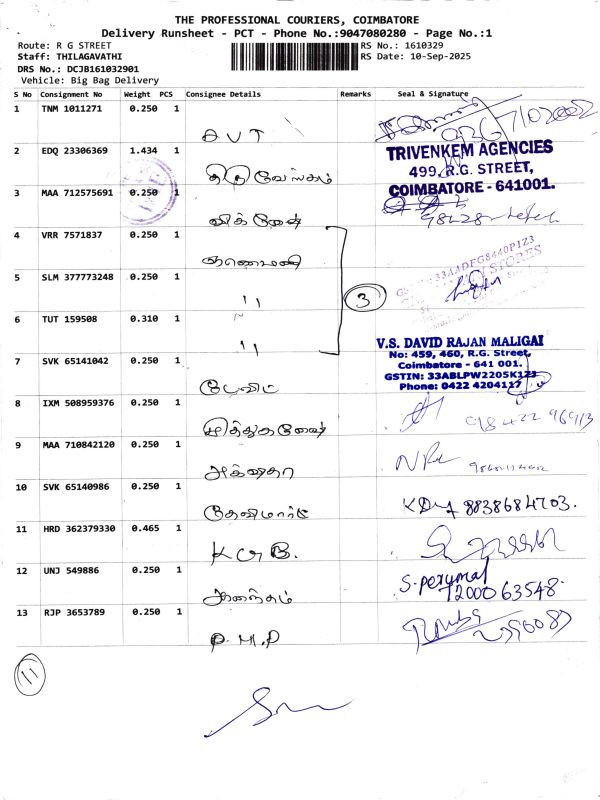 THE PROFESSIONAL COURIERS, COIMBATORE
Delivery Runsheet - PCT - Phone No.:9047080280 - Page No.:1
Route: R G STREET
Staff: THILAGAVATHI
DRS No.: DCJB161032901
Vehicle: Big Bag Delivery
RS No.: 1610329
RS Date: 10-Sep-2025
S No Consignment No Weight PCS Consignee Details Remarks Seal & Signature
1 TNM 1011271 0.250 1
AVT
2 EDQ 23306369 1.434 1
திருவேங்கடம்
TRIVENKEM AGENCIES
499, R.G. STREET,
COIMBATORE - 641001.
3 MAA 712575691 0.250 1
விக்னேஷ்
4 VRR 7571837 0.250 1
5 SLM 377773248 0.250 1
11
3
6 TUT 159508 0.310 1
11
V.S. DAVID RAJAN MALIGAI
No: 459, 460, R.G. Street,
Coimbatore - 641 001.
GSTIN: 33ABLPW2205K1Z3
Phone: 0422 4204117
7 SVK 65141042 0.250 1
டேவிட்
8 IXM 508959376 0.250 1
98422 96913
9 MAA 710842120 0.250 1
அக்ஷதா
10 SVK 65140986 0.250 1
தேவிமார்ட்
8838684703.
11 HRD 362379330 0.465 1
K.G.B.
12 UNJ 549886 0.250 1
ஆனந்தம்
S. Perumal
72000 63548.
13 RJP 3653789 0.250 1
P.M.P
11